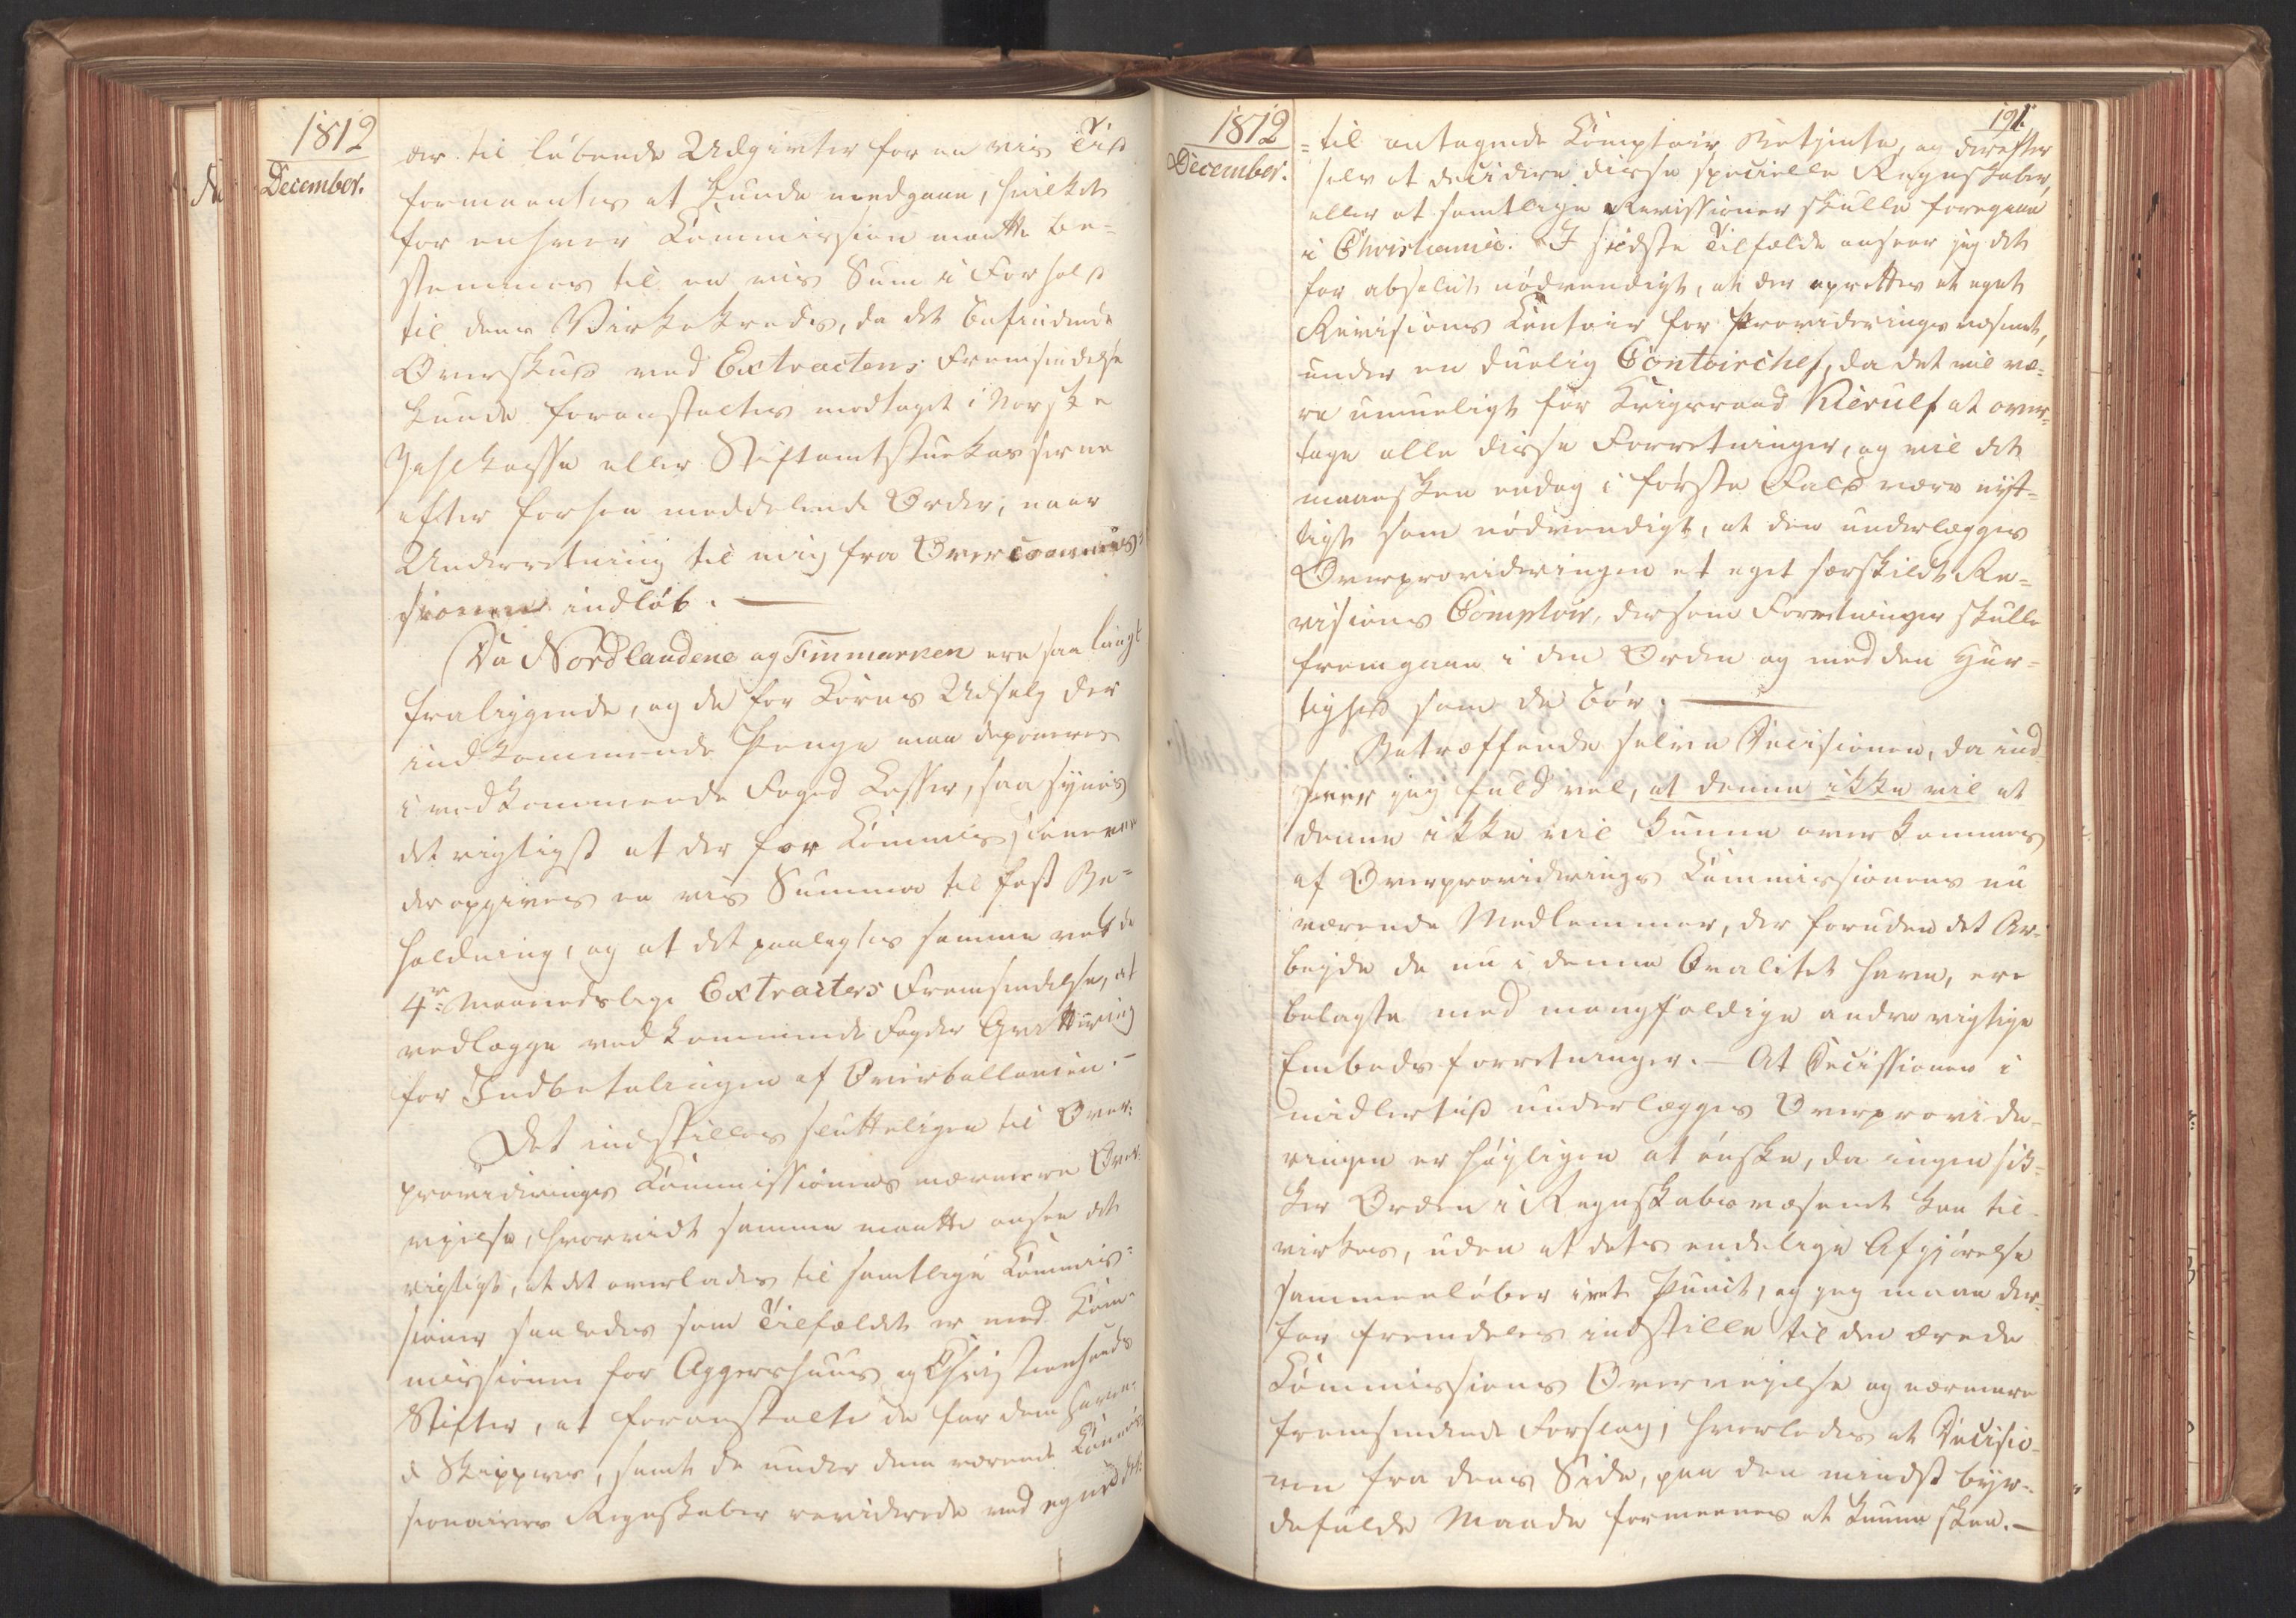 1812
December.
der til løbende Udgivter for en vis Tid
formeentes at kunde medgaae, hvilket
for enhver Commission maatte be=
stemmes til en vis Sum i Forhold
til dens Virkekreds, da det befindende
Overskud ved Extractens Fremsendelse
kunde foranstaltes modtaget i Norske
Zahlkasse eller Stiftamtstuekasserne
efter forhen meddelende Order, naar
Underretning til mig fra Overcommis=
sionen indløb. —
Da Nordlandene og Finmarken ere saa langt
fraliggende, og de for Korns Udsalg der
indkommende Penge maa deponeres
i vedkommende Foged Casser, saa synes
det rigtigst at der for Commissionerne
der opgives en vis Summa til fast Be=
holdning, og at det paalagtes samme ved de
4r Maanedslige Extracters Fremsendelse, at
vedlægge vedkommende Fogders Qvittering
for Indbetalingen af Overballancen. —
Det indstilles slutteligen til Over=
provideringscommissionens nærmere Over=
vejelse, hvorvidt samme maatte ansee det
rigtigt, at det overlades til samtlige Commis=
sioner saaledes som Tilfældet er med Com=
missionen for Aggershuus og Christiansands
Stifter, at foranstalte de for dem faren=
de Skippers, samt de under dem værende Commis=
sionairers Regnskaber reviderede ved egne dertil
1812
December.
191.
= til antagende Comptoir Betjente, og derefter
selv at decidere disse specielle Regnskaber,
eller at samtlige Revissioner skulle foregaae
i Christiania. I sidste Tilfælde anseer jeg det
for absolut nødvendigt, at der oprettes et eget
Revisions Contoir for Provideringsvæsenet,
under en duelig Contoirchef, da det vil væ=
re umueligt for Krigsraad Kierulf at over=
tage alle disse Forretninger, og vil det
maaesken endog i første Fald være nyt=
tigt som nødvendigt, at der underlægges
Overprovideringen et eget særskildt Re=
visions Comptoir, dersom Forretninger skulle
fremgaae i den Orden og med den Hur=
tighed som de bør. —
Betræffende selve Decisionen, da ind=
seer jeg fuldvel, at denne ikke vil at
denne ikke vil kunne overkommes
af Overprovideringscommissionens nu
værende Medlemmer, der foruden det Ar=
bejde de nu i denne Qvalitet have, ere
belagte med mangfoldige andre vigtige
Embedsforretninger. — At Decissionen i
midlertid underlægges Overprovide=
ringen er høyligen at ønske, da ingen sik=
ker Orden i Regnskabsvæsenet kan til=
virkes, uden at dets endelige Afgjørelse
sammenløber i et Punct, og jeg maae der=
for fremdeles indstille til den ærede
Commissions Overvejelse og nærmere
fremsendende Forslag, hvorledes at Decisio=
nen fra dens Side, paa den mindst byr=
defulde Maade formeenes at kunne skee. —